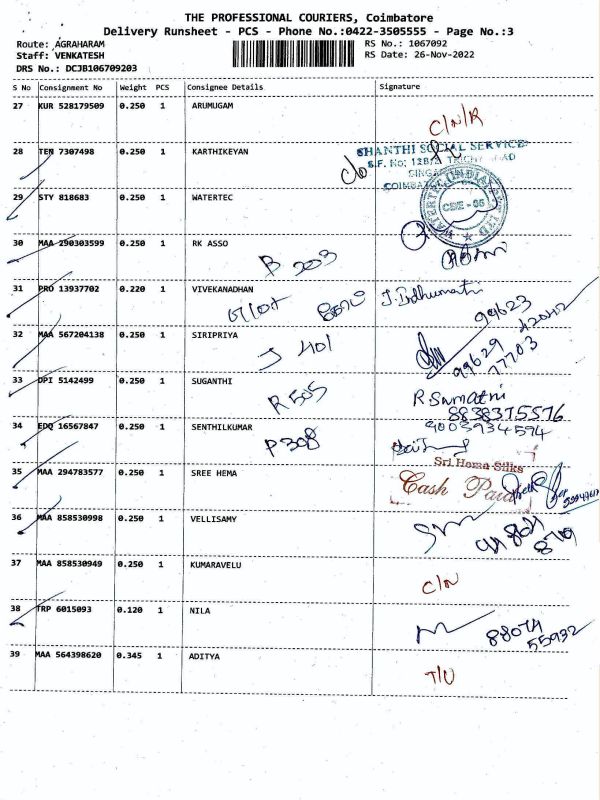 THE PROFESSIONAL COURIERS, Coimbatore
Delivery Runsheet - PCS - Phone No.:0422-3505555 - Page No.:3
Route: AGRAHARAM
RS No.: 1067092
Staff: VENKATESH
RS Date: 26-Nov-2022
DRS No.: DCJB106709203
S No Consignment No Weight PCS Consignee Details Signature
27 KUR 528179509 0.250 1 ARUMUGAM
C/N/R
28 TEN 7307498 0.250 1 KARTHIKEYAN
SHANTHI SOCIAL SERVICE
S.F. No: 128/2 TRICHY ROAD
29 STY 818683 0.250 1 WATERTEC
WATERTEC (INDIA) PVT LTD
CBE - 05
30 MAA 290303599 0.250 1 RK ASSO
B 203
31 PRO 13937702 0.220 1 VIVEKANADHAN
J. Indhumathi
99623
42042
32 MAA 567204138 0.250 1 SIRIPRIYA
J 401
99629
77703
33 DPI 5142499 0.250 1 SUGANTHI
R 505
R. Sumathi
8838375576
34 EDQ 16567847 0.250 1 SENTHILKUMAR
P 308
9003934594
35 MAA 294783577 0.250 1 SREE HEMA
Sri Hema Silks
Cash Paid
36 MAA 858530998 0.250 1 VELLISAMY
37 MAA 858530949 0.250 1 KUMARAVELU
C/N
38 TRP 6015093 0.120 1 NILA
88074
55932
39 MAA 564398620 0.345 1 ADITYA
T/U